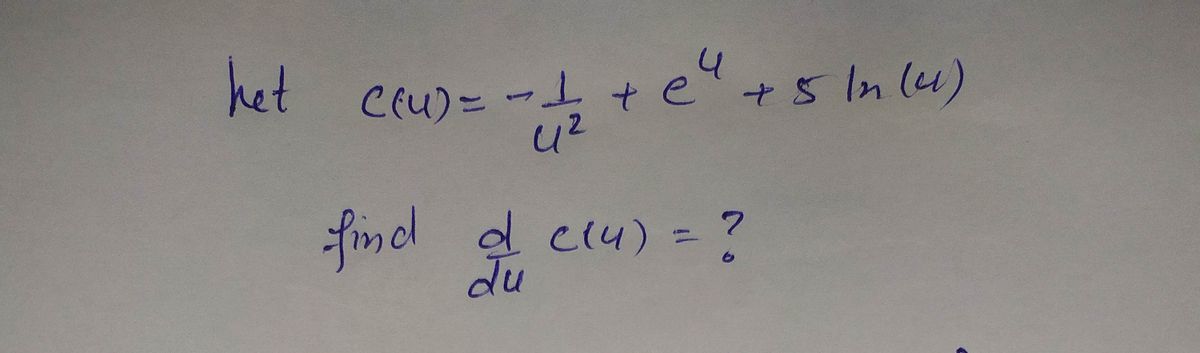 Let c(u) = -1/u² + e^u + 5 ln(u)
find d/du c(u) = ?